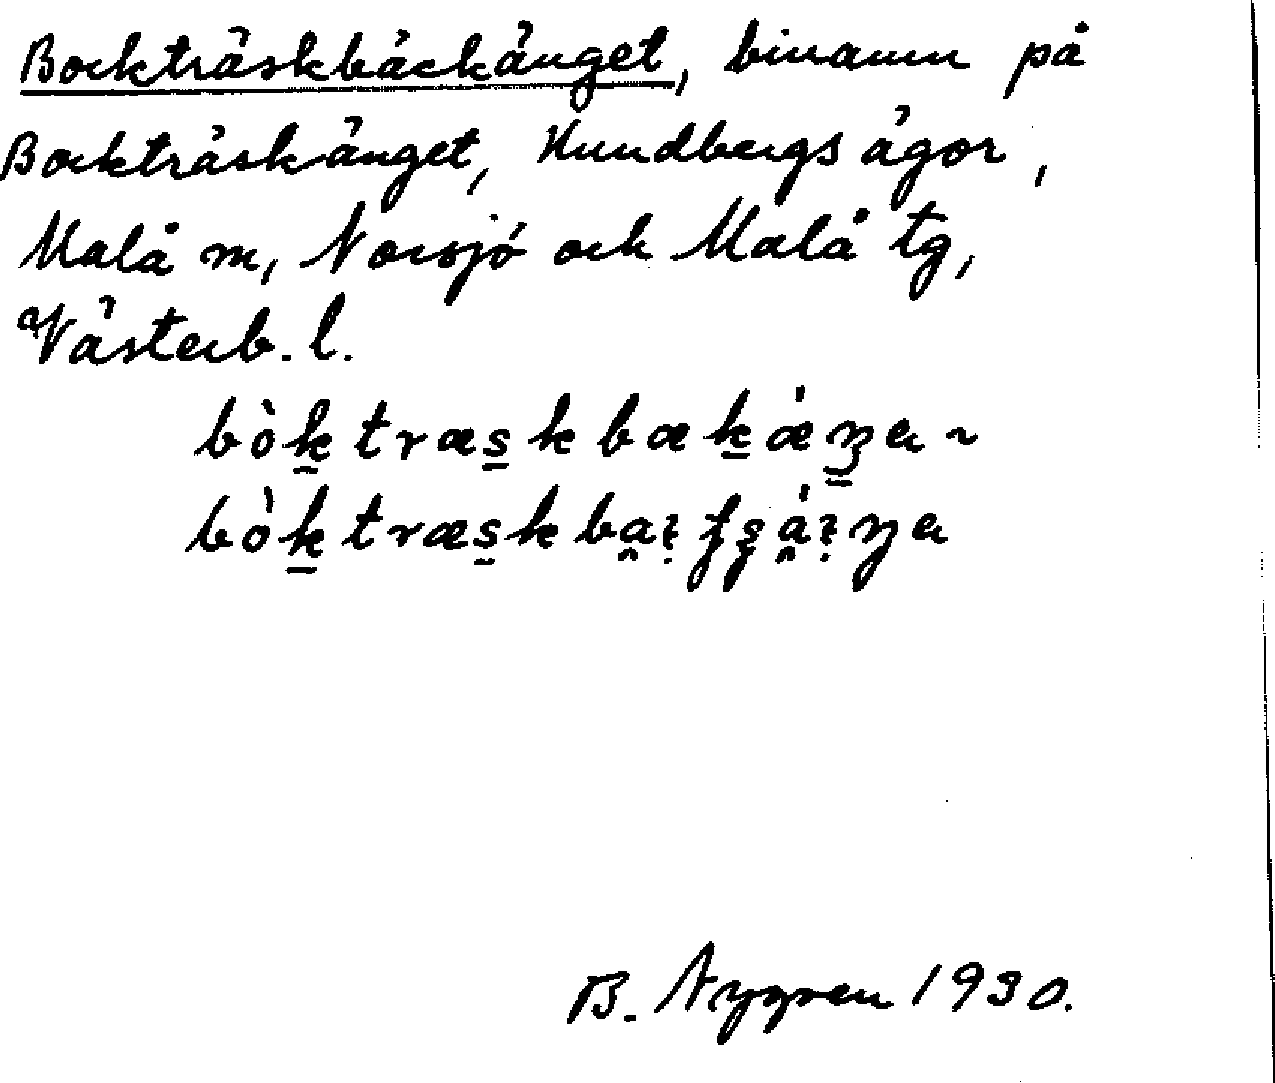 Bockträskbäckänget, binamn på
Bockträskänget, Hundbergs ägor,
Malå sn, Norsjö och Malå tg,
Västerb. l.
bòk̠træs̠kbæk̠ǽŋ̠a ~
bòk̠træs̠kba̯ı̣ʄʂá̯ı̣ŋa
B. Nygren 1930.